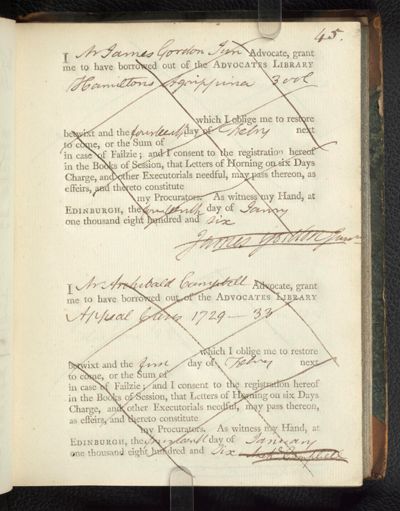 45.
I Mr James Gordon Junr Advocate, grant
me to have borrowed out of the ADVOCATES LIBRARY
Hamiltons Agrippina 3 vols
which I oblige me to restore
betwixt and the fourteenth day of Febry next
to come, or the Sum of
in case of Failzie; and I consent to the registration hereof
in the Books of Session, that Letters of Horning on six Days
Charge, and other Executorials needful, may pass thereon, as
effeirs, and thereto constitute
my Procurators. As witness my Hand, at
EDINBURGH, the fourteenth day of Janry
one thousand eight hundred and six
James Gordon Junr
I Mr Archibald Campbell Advocate, grant
me to have borrowed out of the ADVOCATES LIBRARY
Appeal Cases 1729—33
which I oblige me to restore
betwixt and the day of Febry next
to come, or the Sum of
in case of Failzie; and I consent to the registration hereof
in the Books of Session, that Letters of Horning on six Days
Charge, and other Executorials needful, may pass thereon,
as effeirs, and thereto constitute
my Procurators. As witness my Hand, at
EDINBURGH, the fourteenth day of January
one thousand eight hundred and Six